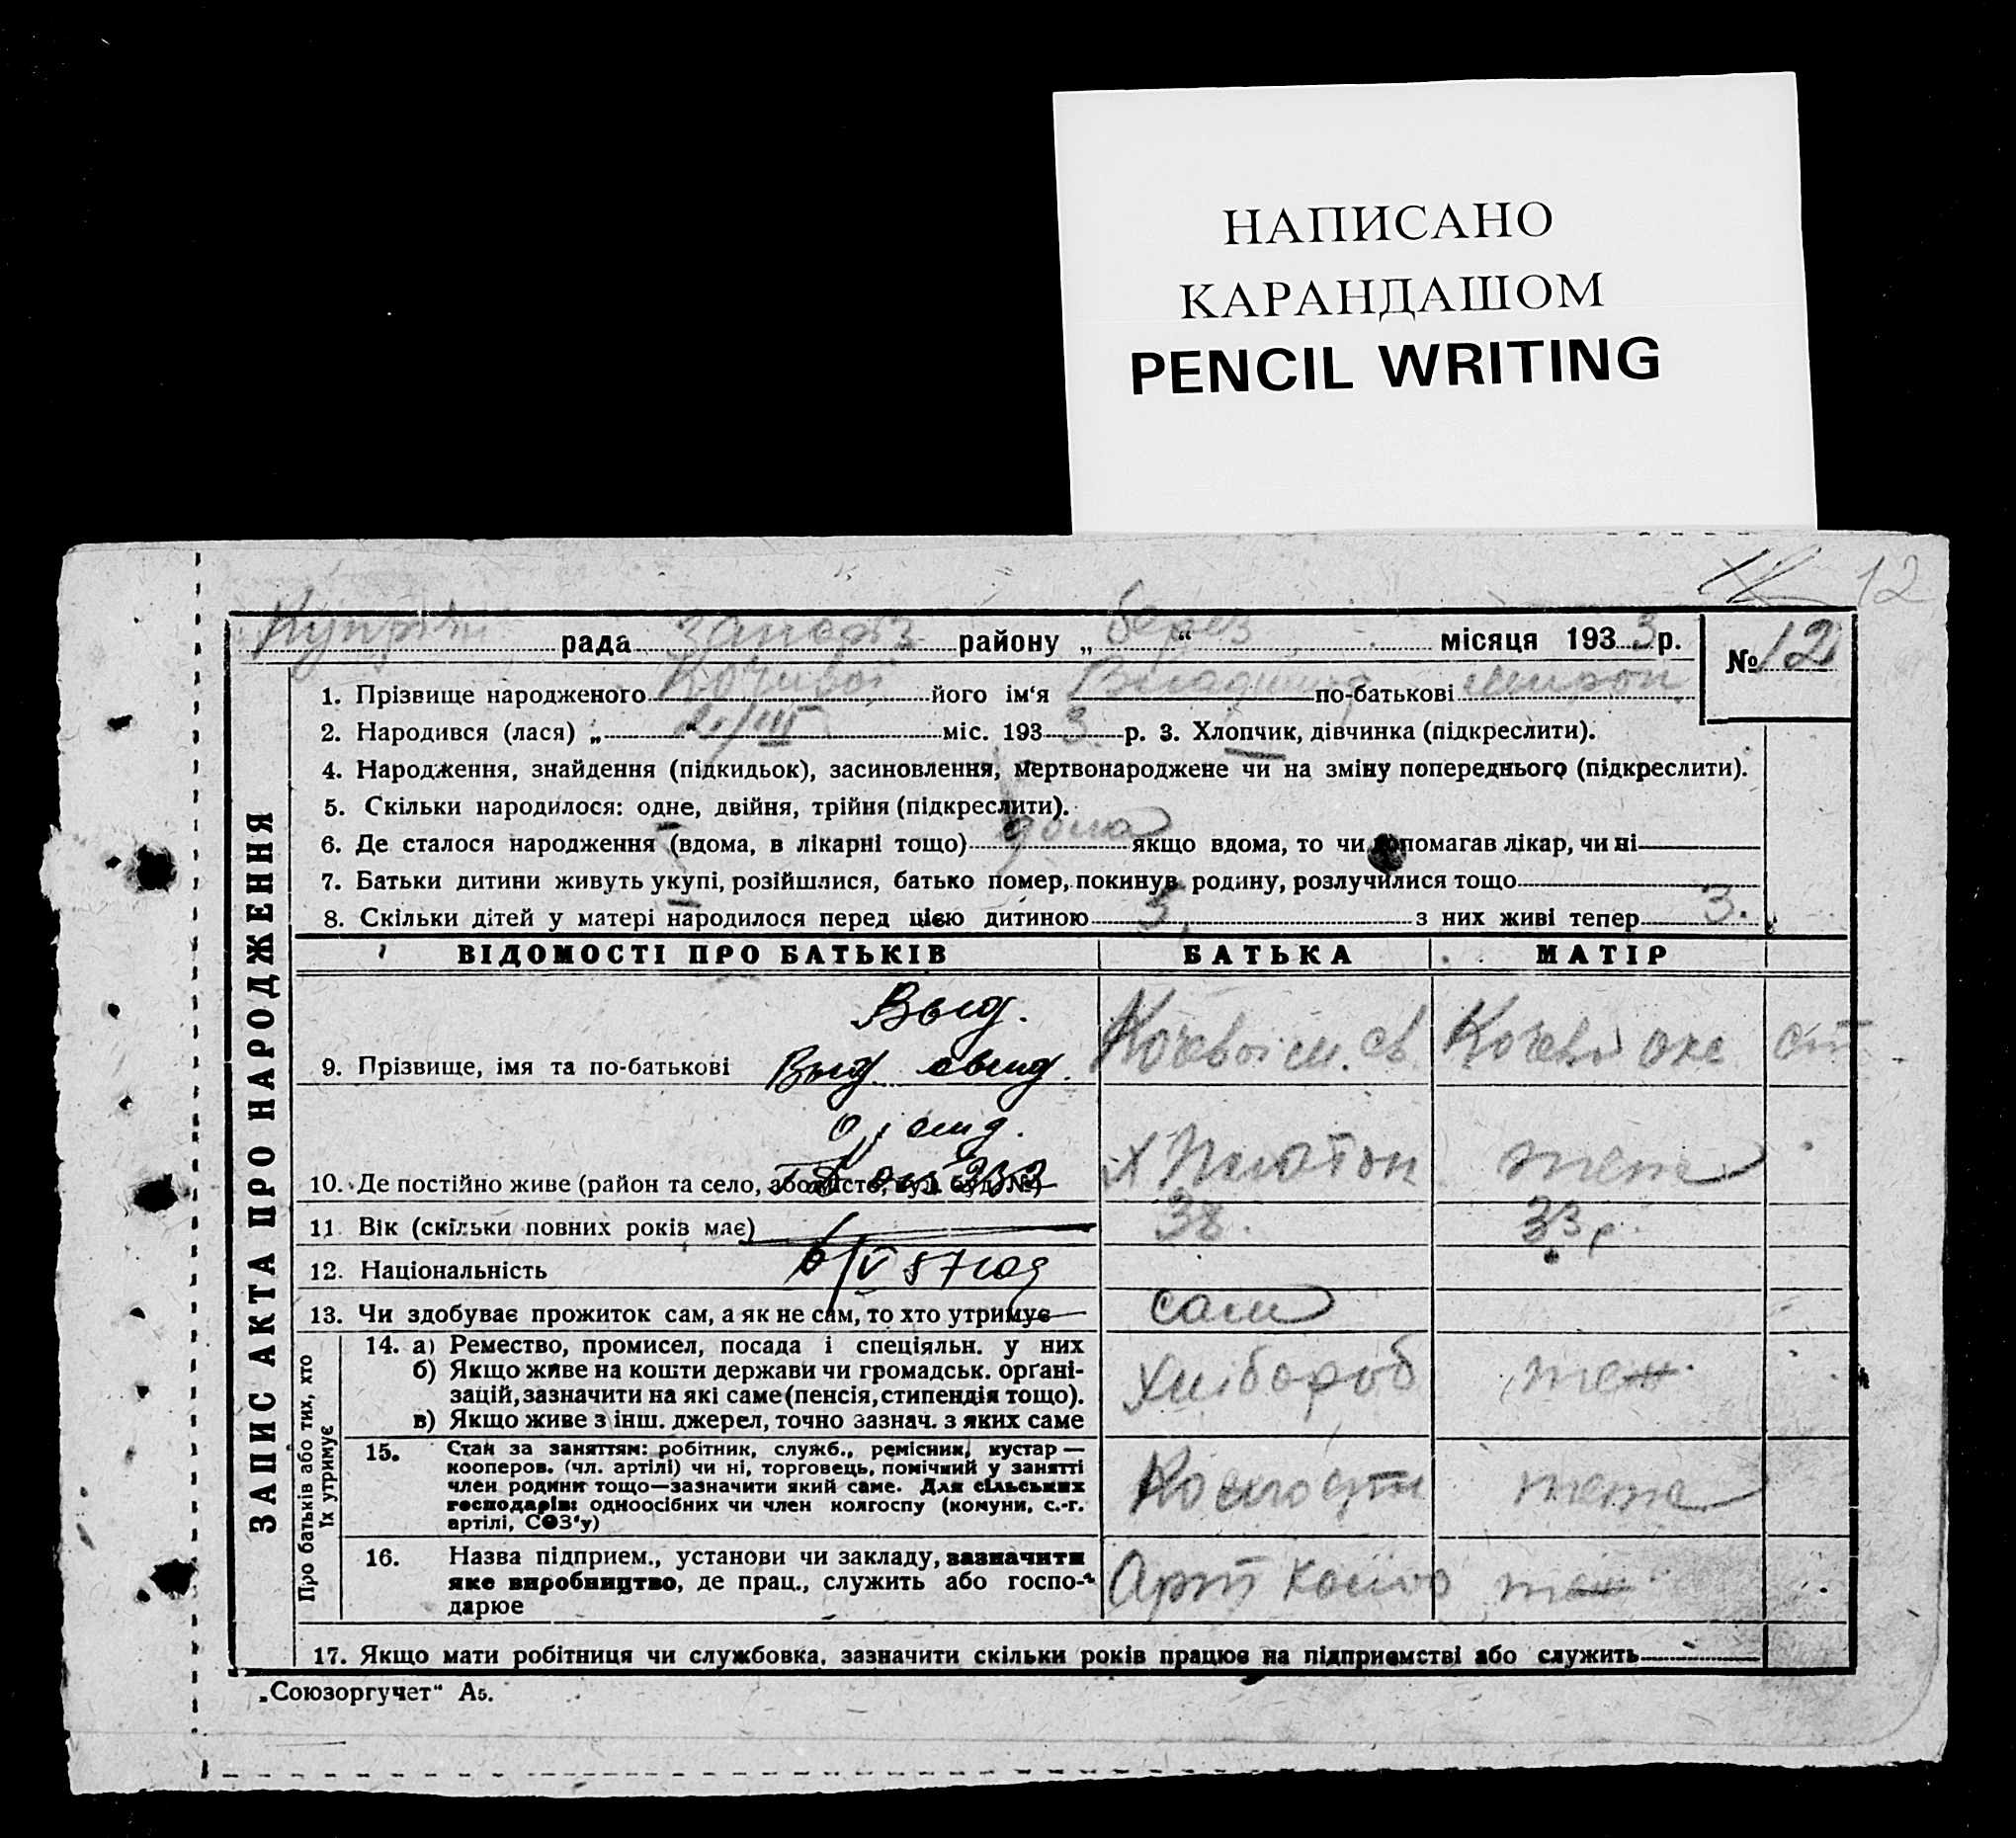 НАПИСАНО
КАРАНДАШОМ
PENCIL WRITING
12
рада Запоріз району „ берез “ місяця 193 3 р. № 12
1. Прізвище народженого його ім‘я по-батькові Мирон
2. Народився (лася) „ 2/III “ міс. 193 3 р. 3. Хлопчик, дівчинка (підкреслити).
4. Народження, знайдення (підкидьок), засиновлення, мертвонароджене чи на зміну попереднього (підкреслити).
5. Скільки народилося: одне, двійня, трійня (підкреслити).
6. Де сталося народження (вдома, в лікарні тощо) дома якщо вдома, то чи допомагав лікар, чи ні
7. Батьки дитини живуть укупі, розійшлися, батько помер, покинув родину, розлучилися тощо
8. Скільки дітей у матері народилося перед цією дитиною 3 з них живі тепер 3.
ЗАПИС АКТА ПРО НАРОДЖЕННЯ
ВІДОМОСТІ ПРО БАТЬКІВ БАТЬКА МАТІР
Выд.
9. Прізвище, імя та по-батькові Выд.
10. Де постійно живе (район та село, або місто, вул. буд. №) х Платон жена
11. Вік (скільки повних років має) 38. 33 р
12. Національність 6/V 57 год
13. Чи здобуває прожиток сам, а як не сам, то хто утримує сам
Про батьків або тих, хто їх утримує
14. а) Ремество, промисел, посада і спеціяльн. у них
б) Якщо живе на кошти держави чи громадськ. органі-
зацій, зазначити на які саме (пенсія, стипендія тощо).
в) Якщо живе з інш. джерел, точно зазнач. з яких саме
Хлібороб жен
15. Стан за заняттям: робітник, служб., ремісник, кустар —
кооперов. (чл. артілі) чи ні, торговець, помічний у занятті
член родини тощо—зазначити який саме. Для сільських
господарів: одноосібних чи член колгоспу (комуни, с.-г.
артілі, СОЗ‘у)
жена
16. Назва підприєм., установи чи закладу, зазначити
яке виробництво, де прац., служить або госпо-
дарює
Арт жен
17. Якщо мати робітниця чи службовка, зазначити скільки років працює на підприємстві або служить
„Союзоргучет“ А5.